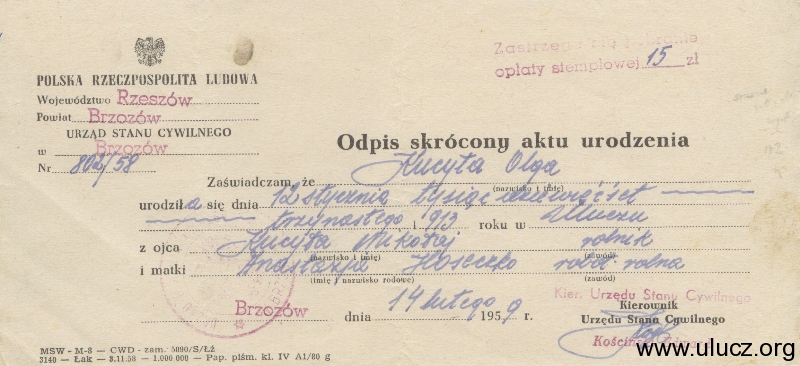 POLSKA RZECZPOSPOLITA LUDOWA
Województwo Rzeszów
Powiat Brzozów
URZĄD STANU CYWILNEGO
w Brzozów
Nr 802/58
opłaty stemplowej 15 zł
Odpis skrócony aktu urodzenia
Zaświadczam, że Kucyła Olga
(nazwisko i imię)
urodziła się dnia 12 stycznia tysiąc dziewięćset
trzynastego i 913 roku w Uluczu
z ojca Kucyła Mikołaj rolnik
(nazwisko i imię) (zawód)
i matki Anastazja robot. rolna
(imię i nazwisko rodowe) (zawód)
Brzozów dnia 14 lutego 1959 r.
Kier. Urzędu Stanu Cywilnego
Kierownik
Urzędu Stanu Cywilnego
MSW - M-8 - CWD - zam. 5090/S/ŁŻ
3140 - Łak - 3.11.58 - 1.000 000 - Pap. piśm. kl. IV A1/80 g
www.ulucz.org